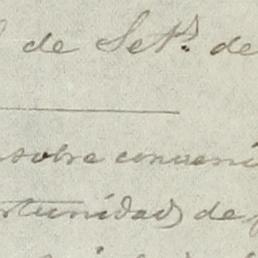 de Set.º de
sobre conveni
ortunidad de